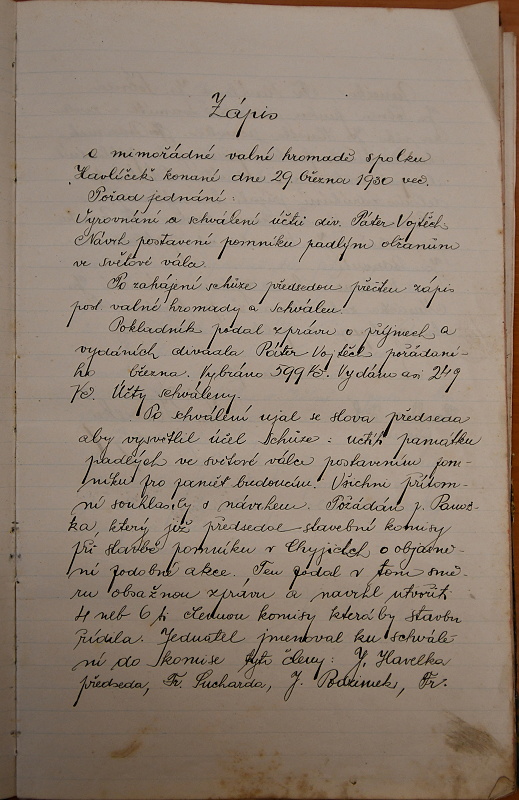 Zápis
o mimořádné valné hromadě spolku
"Havlíček" konané dne 29 března 1930 več.
Pořad jednání:
Vyrovnání a schválení účtů div. Páter Vojtěch
Návrh postavení pomníku padlým občanům
ve světové válce.
Po zahájení schůze předsedou přečten zápis
posl. valné hromady a schválen.
Pokladník podal zprávu o příjmech a
vydáních divadla Páter Vojtěch pořádané-
ho března. Vybráno 599 Kč. Vydáno asi 249
Kč. Účty schváleny.
Po schválení ujal se slova předseda
aby vysvětlil účel schůze: uctíti památku
padlých ve světové válce postavením pom-
níku pro paměť budoucím. Všichni přítom-
ní souhlasily s návrhem. Požádán p.
který již předsedal stavební komisy
při stavbě pomníku v Chyjicích o objasně-
ní podobné akce. Ten podal v tom smě-
ru obsažnou zprávu a navrhl utvořiti
4 neb 6 ti člennou komisy která by stavbu
řídila. Jednatel jmenoval ku schvále-
ní do komise tyto členy: J. Havelka
předseda, Fr. Sucharda, J. Podzimek, Fr.